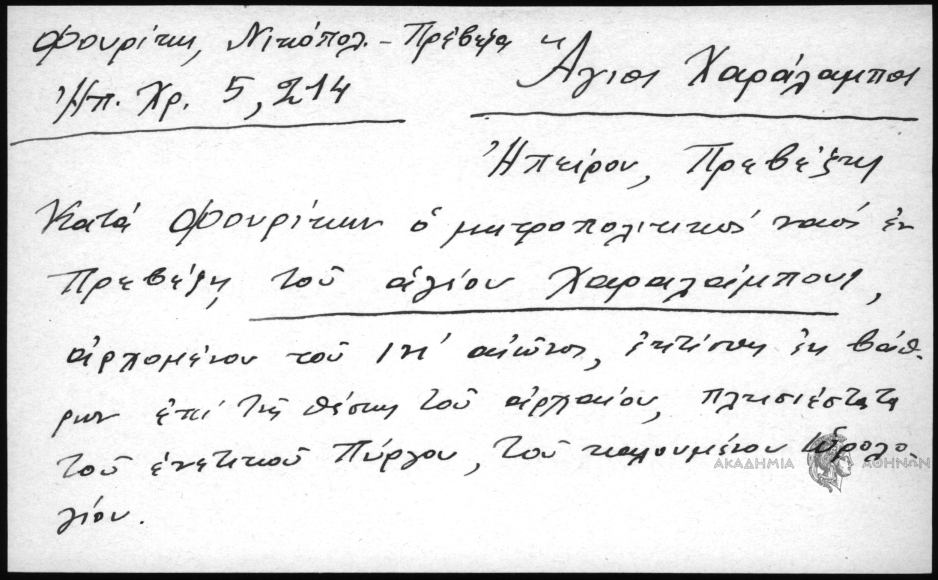 Φουρίκη, Νικόπολ. - Πρέβεζα
Ἠπ. Χρ. 5, 214
Ἅγιος Χαράλαμπος
Ἠπείρου, Πρεβέζης
Κατά Φουρίκην ὁ μητροπολιτικός ναός ἐν
Πρεβέζῃ τοῦ ἁγίου Χαραλάμπους,
ἀρχομένου τοῦ ΙΗ' αἰῶνος, ἐκτίσθη ἐκ βάθ-
ρων ἐπί τῆς θέσης τοῦ ἀρχαίου, πλησιέστατα
τοῦ ἑνετικοῦ Πύργου, τοῦ καλουμένου Ὡρολο-
γίου.
ΑΚΑΔΗΜΙΑ ΑΘΗΝΩΝ